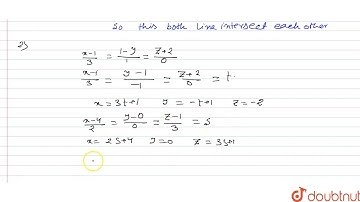 So this both line intersect each other
2) x-1/3 = 1-y/1 = z+2/0
x-1/3 = y-1/-1 = z+2/0 = t.
x = 3t+1 y = -t+1 z = -2
x-4/2 = y-0/0 = z-1/3 = s
x = 2s+4 y=0 z = 3s+1
doubtnut